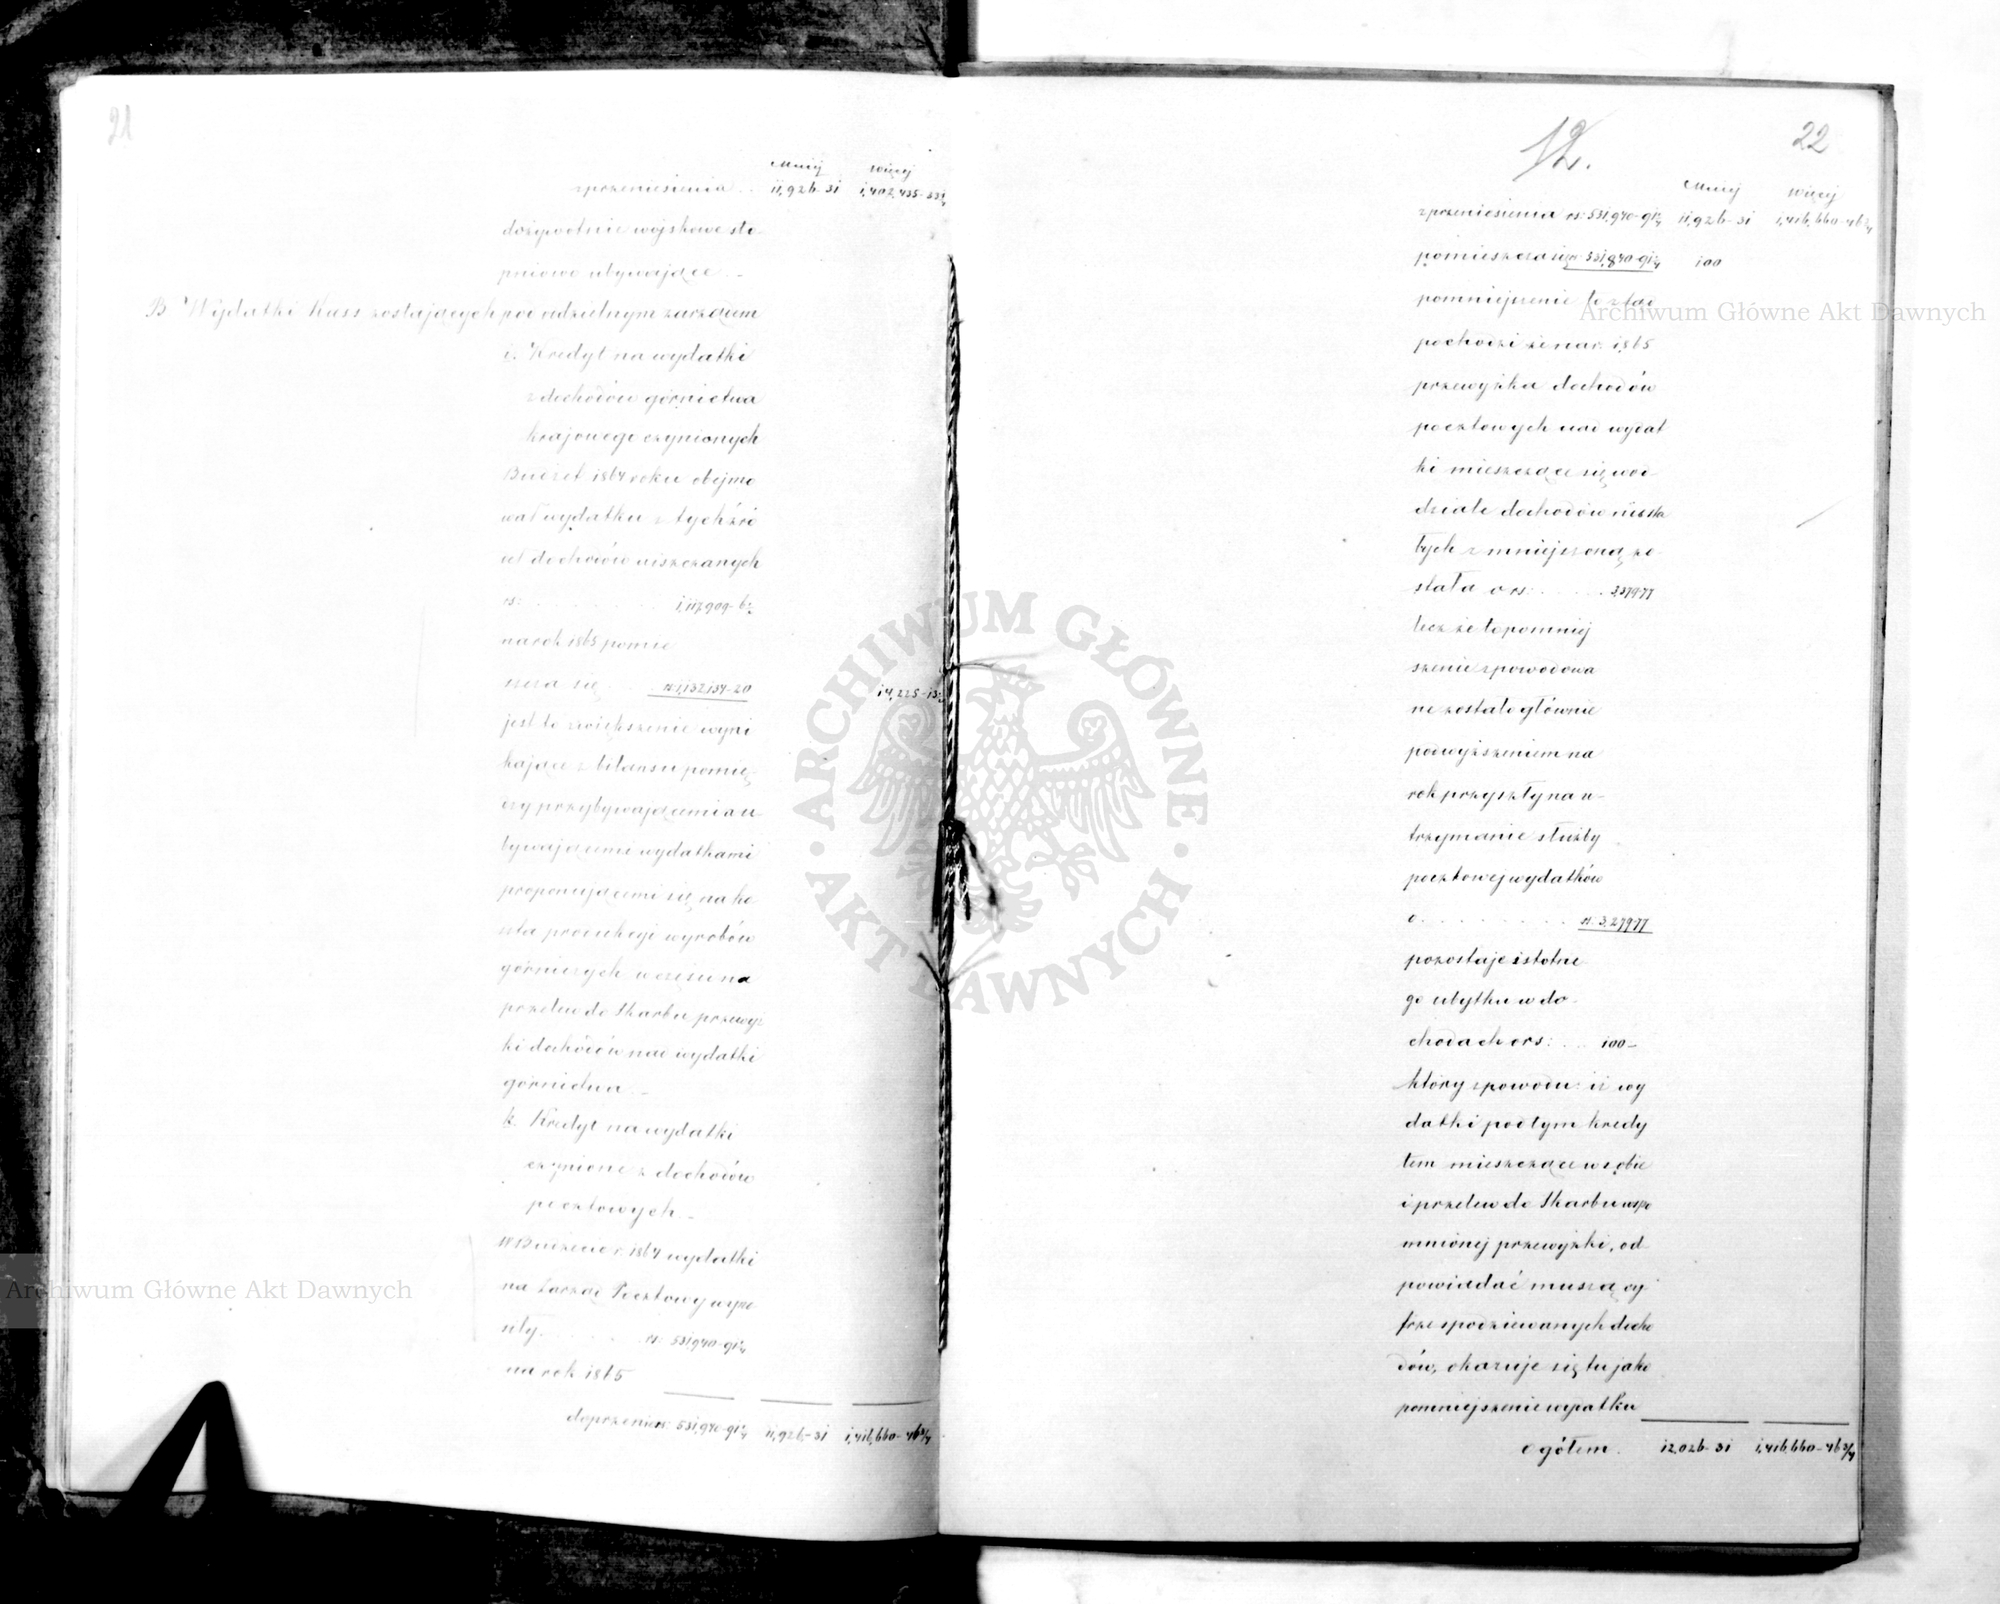 21
Mniej Więcej
z przeniesienia . . 11,926-31 1,402,435-33¼
dożywotnie wojskowe sto-
pniowo ubywające. _
B. Wydatki Kass zostających pod oddzielnym zarządem
i. Kredyt na wydatki
z dochodów górnictwa
krajowego czynionych
Budżet 1864 roku obejmo
wał wydatku z tychźró
deł dochodów uiszczanych
rs: . . . . . . 1,117,909-6½
na rok 1865 pomie
szcza się . . rs. 1,132,134-20 14,225-13½
jest to zwiększenie wyni
kające z bilansu pomię-
dzy przybywającemi a u-
bywającemi wydatkami
proponującemi się na ko
szta produkcyi wyrobów
górniczych w części na
przelew do Skarbu przewyż
ki dochodów nad wydatki
górnictwa _
k. Kredyt na wydatki
czynione z dochodów
pocztowych _
W Budżecie r. 1864 wydatki
na Zarząd Pocztowy wyno
siły . . . . . rs: 531,940-91¼
na rok 1865
do przenies: 531,940-91¼ 11,926-31 1,416,660-46¾
12.
22
Mniej Więcej
z przeniesienia rs: 531,940-91¼ 11,926-31 1,416,660-46¾
pomieszcza się rs. 531,840-91¼ 100
pomniejszenie to ztąd
pochodzi że na r. 1865
przewyżka dochodów
pocztowych nad wydat
ki mieszcząca się w od-
dziale dochodów niesta
łych zmniejszoną zo-
stała o rs: . . . . . 3,379-77
lecz że to pomniej
szenie spowodowa
ne zostało głównie
podwyższeniem na
rok przyszły na u-
trzymanie służby
pocztowej wydatków
o . . . . . . . . rs. 3,279-77
pozostaje istotne
go ubytku w do-
chodach o rs: . . 100 _
który z powodu: iż wy
datki pod tym kredy
tem mieszczące w sobie
i przelew do Skarbu wspo
mnionej przewyżki, od-
powiadać muszą cy-
frze spodziewanych docho
dów, okazuje się tu jako
pomniejszenie wydatku
ogółem . 12,026-31 1,416,660-46¾
Archiwum Główne Akt Dawnych
Archiwum Główne Akt Dawnych
ARCHIWUM GŁÓWNE AKT DAWNYCH